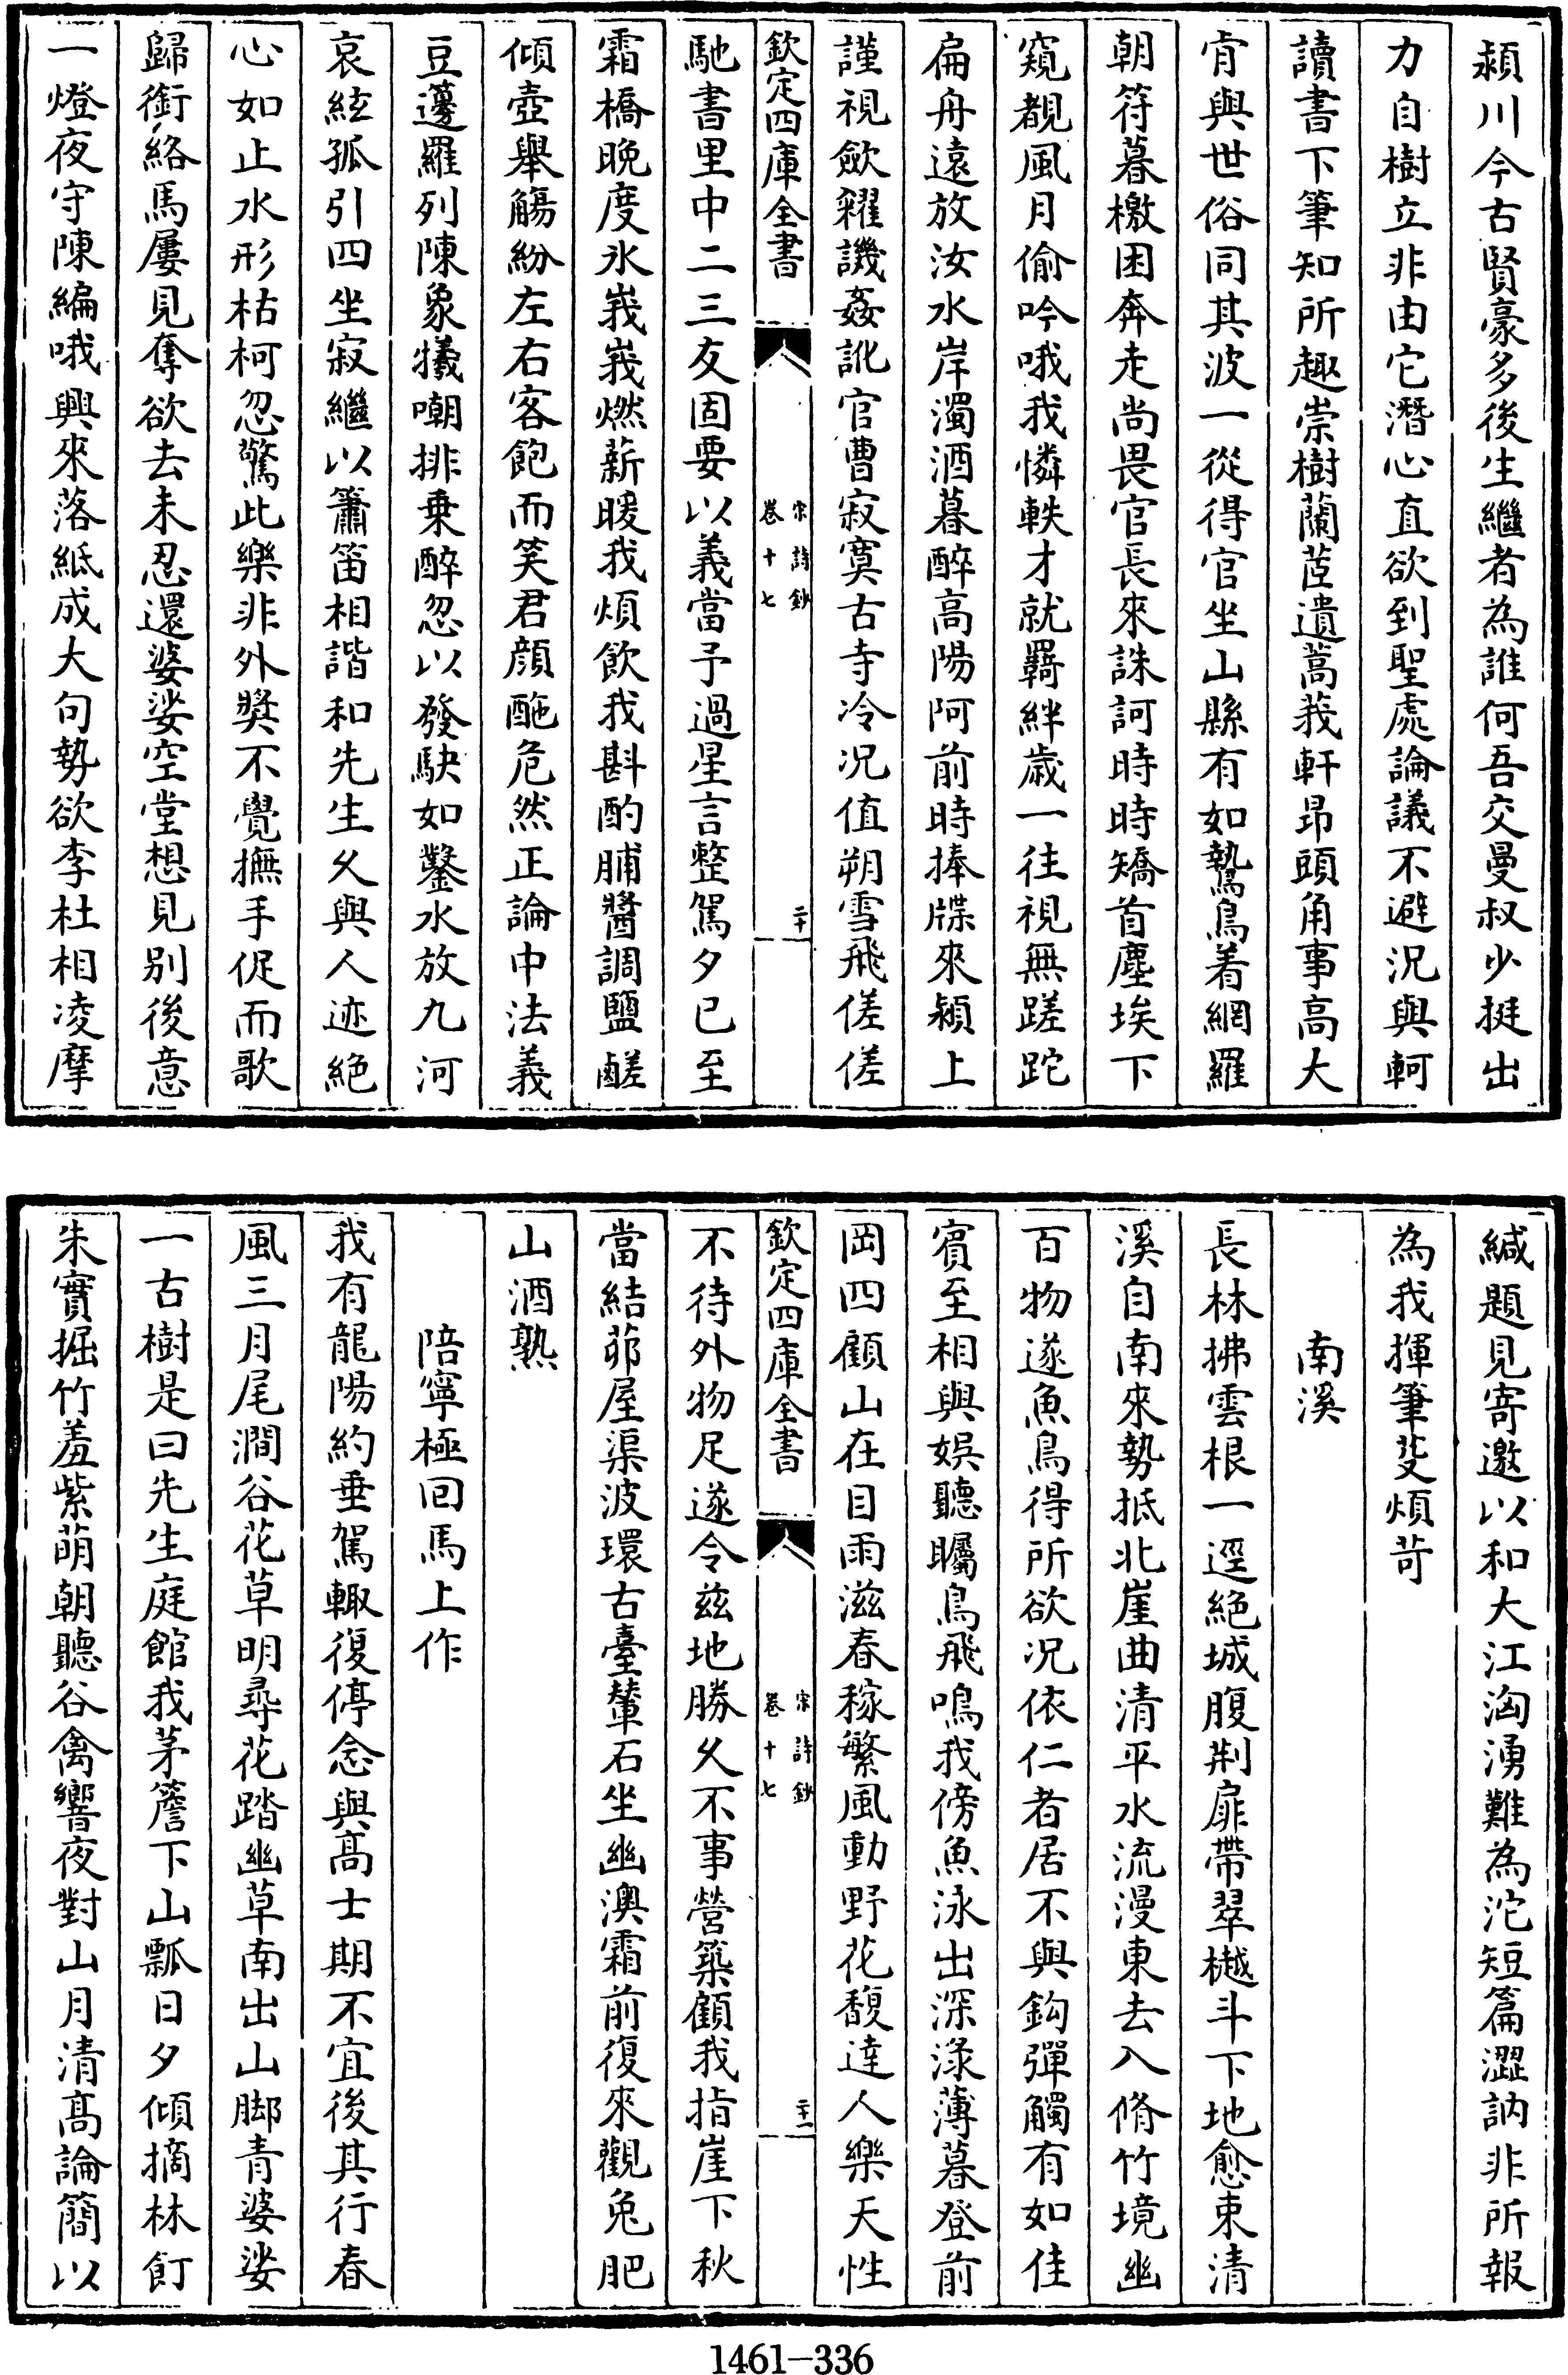 潁川今古賢豪多後生繼者為誰何吾交曼叔少挺出
力自樹立非由它潛心直欲到聖處論議不避況與軻
讀書下筆知所趣崇樹蘭茝遺蒿莪軒昻頭角事高大
肯與世俗同其波一從得官坐山縣有如鷙鳥着網羅
朝符暮檄困奔走尚畏官長來誅訶時時矯首塵埃下
窺覩風月偷吟哦我憐軼才就羇絆歳一往視無蹉跎
扁舟遠放汝水岸濁酒暮醉高陽阿前時捧牒來潁上
謹視歛糴譏姦訛官曹寂寞古寺冷况值朔雪飛傞傞
欽定四庫全書
宋詩鈔
卷十七
二十
馳書里中二三友固要以義當予過星言整駕夕已至
霜橋晚度氷峩峩燃薪暖我煩飲我斟酌脯醬調鹽鹺
傾壺舉觴紛左右客飽而笑君顔酡危然正論中法義
豆籩羅列陳象犧嘲排乗醉忽以發駃如鑿水放九河
哀絃孤引四坐寂繼以簫笛相諧和先生久與人迹絶
心如止水形枯柯忽驚此樂非外奬不覺撫手促而歌
歸銜絡馬屢見奪欲去未忍還婆娑空堂想見别後意
一燈夜守陳編哦興來落紙成大句勢欲李杜相凌摩
緘題見寄邀以和大江洶湧難為沱短篇澀訥非所報
為我揮筆芟煩苛
南溪
長林拂雲根一逕絶城腹荆扉帶翠樾斗下地愈束清
溪自南來勢抵北崖曲清平水流漫東去入脩竹境幽
百物遂魚鳥得所欲况依仁者居不與鈎彈觸有如佳
賓至相與娯聽矚鳥飛鳴我傍魚泳出深渌薄暮登前
岡四顧山在目雨滋春稼繁風動野花馥達人樂天性
欽定四庫全書
宋詩鈔
卷十七
二十一
不待外物足遂令兹地勝久不事營築顧我指崖下秋
當結茆屋渠波環古臺輦石坐幽澳霜前復來觀兔肥
山酒熟
陪寧極回馬上作
我有龍陽約垂駕輙復停念與髙士期不宜後其行春
風三月尾澗谷花草明尋花踏幽草南出山脚青婆娑
一古樹是曰先生庭館我茅簷下山瓢日夕傾摘林飣
朱實掘竹羞紫萌朝聽谷禽響夜對山月清髙論簡以
1461-336